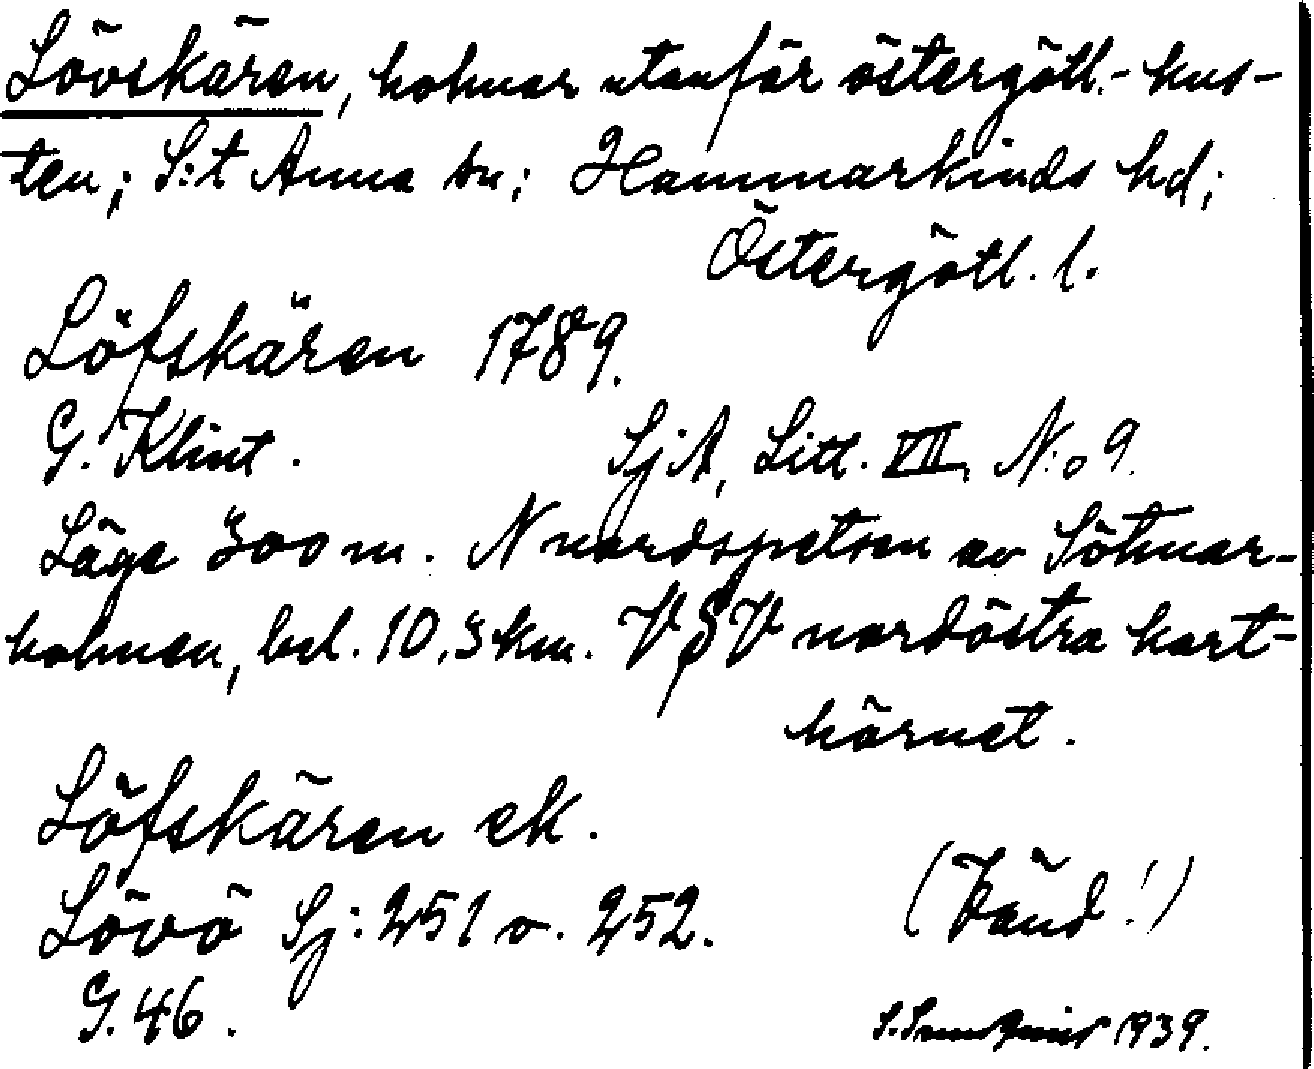 Lövskären, holmar utanför östergötl.-kus-
ten; S:t Anna sn; Hammarkinds hd;
Östergötl. l.
Löfskären 1789.
G. Klint. SjA, Litt. VII, N:o 9.
Läge 300 m. N nordspetsen av Sötmar-
holmen, bel. 10,3 km. VSV nordöstra kart-
hörnet.
Löfskären ek.
Lövö Sj: 251 o. 252. (Vänd!)
G. 46.
S. 1939.